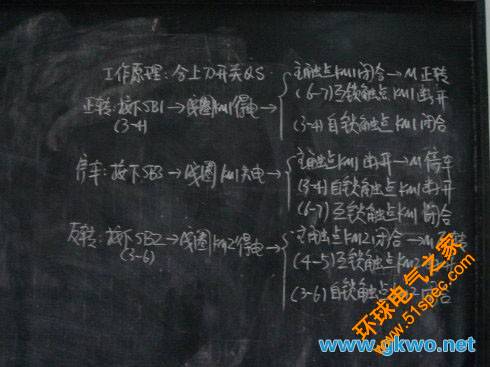 工作原理：合上刀开关QS
正转：按下SB1→线圈KM1得电→
(3-4)
主触点KM1闭合→M正转
(6-7)互锁触点KM1断开
(3-4)自锁触点KM1闭合
停车：按下SB3→线圈KM1失电→
主触点KM1断开→M停车
(3-4)自锁触点KM1断开
(6-7)互锁触点KM1闭合
反转：按下SB2→线圈KM2得电→
(3-6)
主触点KM2闭合→M
(4-5)互锁触点KM2
(3-6)自锁触点KM2闭合
环球电气之家
www.51spec.com
www.gkwo.net